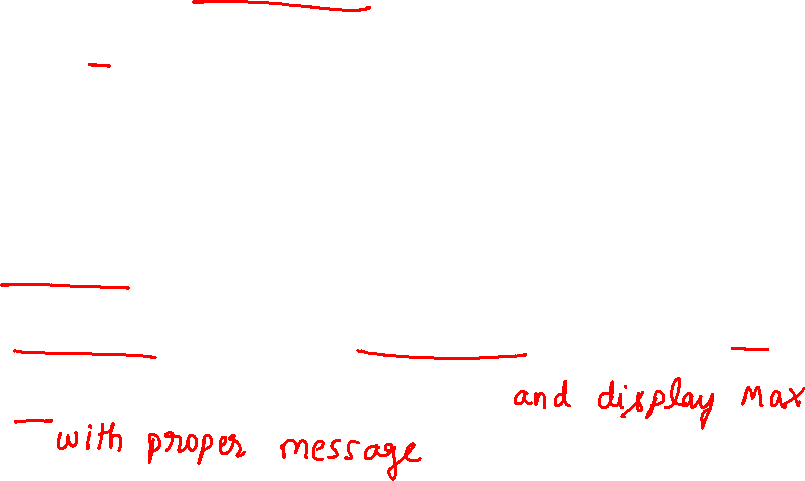 and display max
with proper message